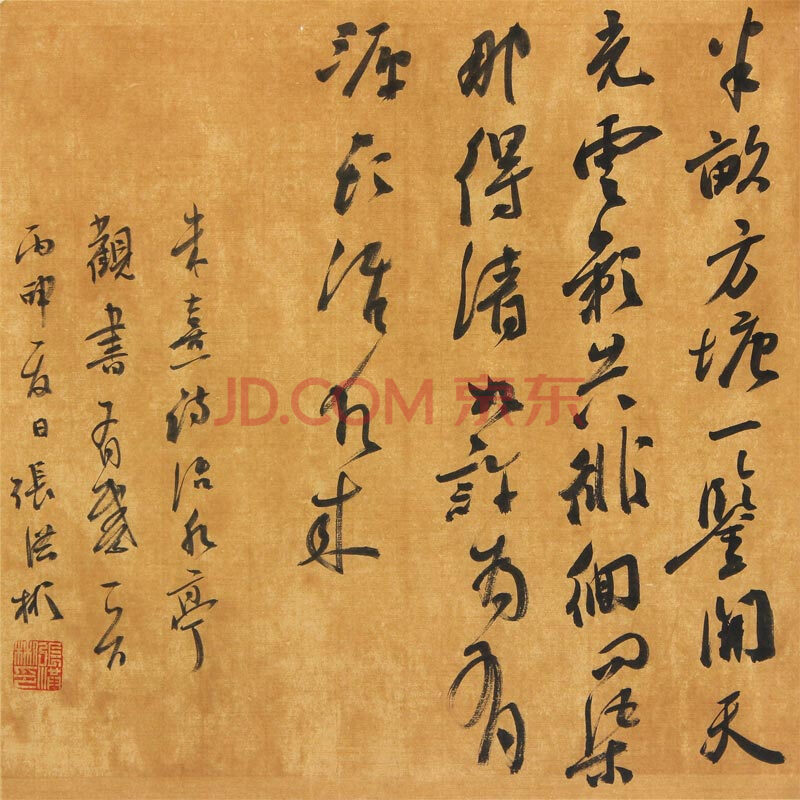 半畝方塘一鑒開天
光雲影共徘徊問渠
那得清如許為有
源頭活水來
朱熹詩活水亭
觀書有感一首
丙申夏日張洪彬
JD.COM 京东